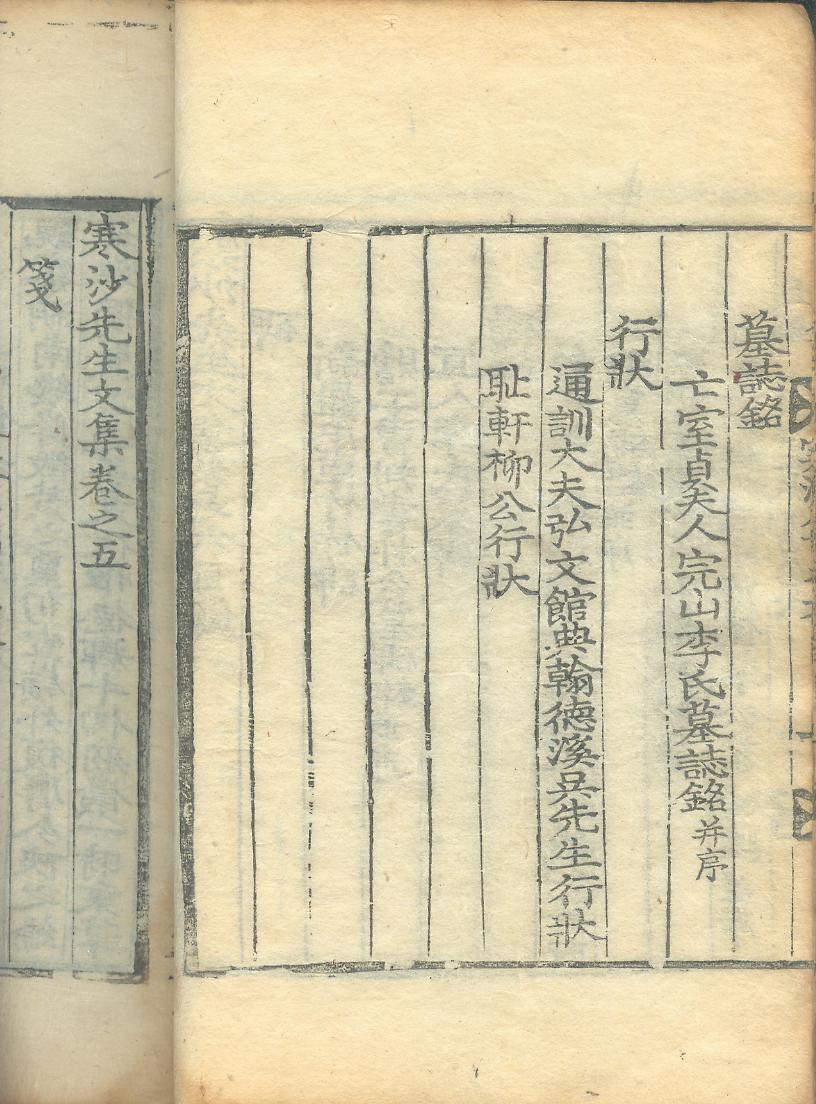 墓誌銘
亡室貞夫人完山李氏墓誌銘 并序
行狀
通訓大夫弘文館典翰德溪吳先生行狀
耻軒柳公行狀
寒沙先生文集卷之五
箋